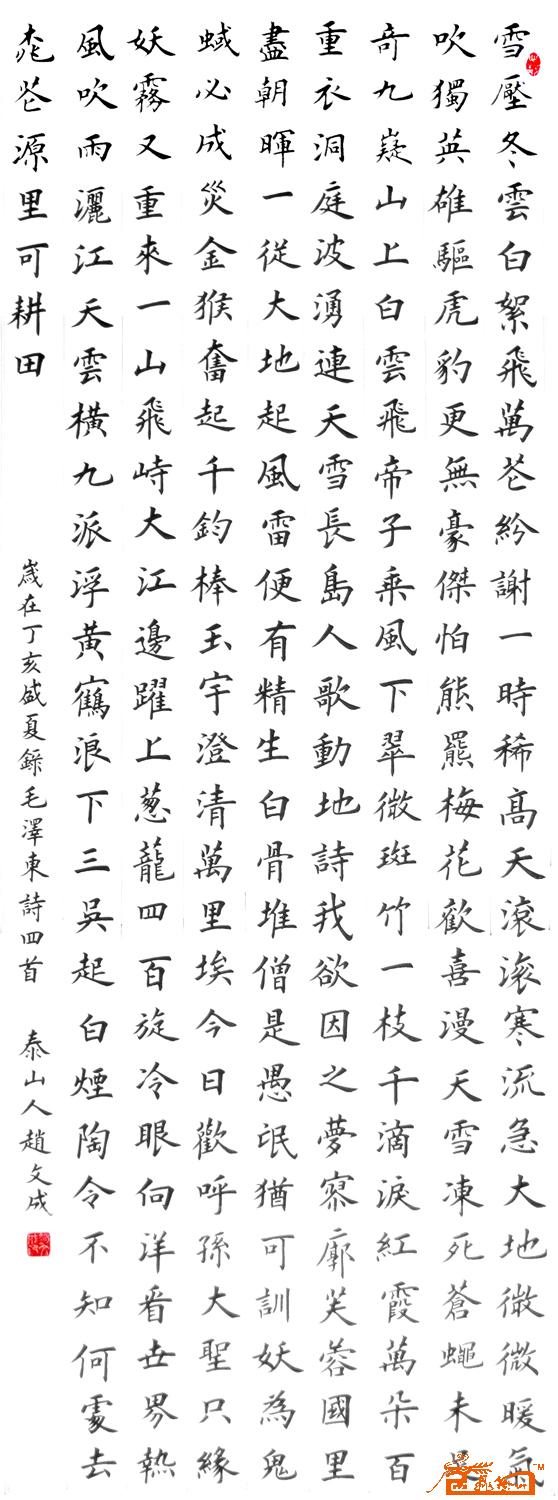 雪壓冬雲白絮飛萬芲紛謝一時稀高天滾滾寒流急大地微微暖氣
吹獨英雄驅虎豹更無豪傑怕熊羆梅花歡喜漫天雪凍死蒼蠅未足
奇九嶷山上白雲飛帝子乘風下翠微斑竹一枝千滴淚紅霞萬朵百
重衣洞庭波湧連天雪長島人歌動地詩我欲因之夢寥廓芙蓉國里
盡朝暉一從大地起風雷便有精生白骨堆僧是愚氓猶可訓妖為鬼
蜮必成災金猴奮起千鈞棒玉宇澄清萬里埃今日歡呼孫大聖只緣
妖霧又重來一山飛峙大江邊躍上葱蘢四百旋冷眼向洋看世界熱
風吹雨灑江天雲橫九派浮黃鶴浪下三吳起白煙陶令不知何處去
桃芲源里可耕田
歲在丁亥盛夏錄毛澤東詩四首 泰山人趙文成